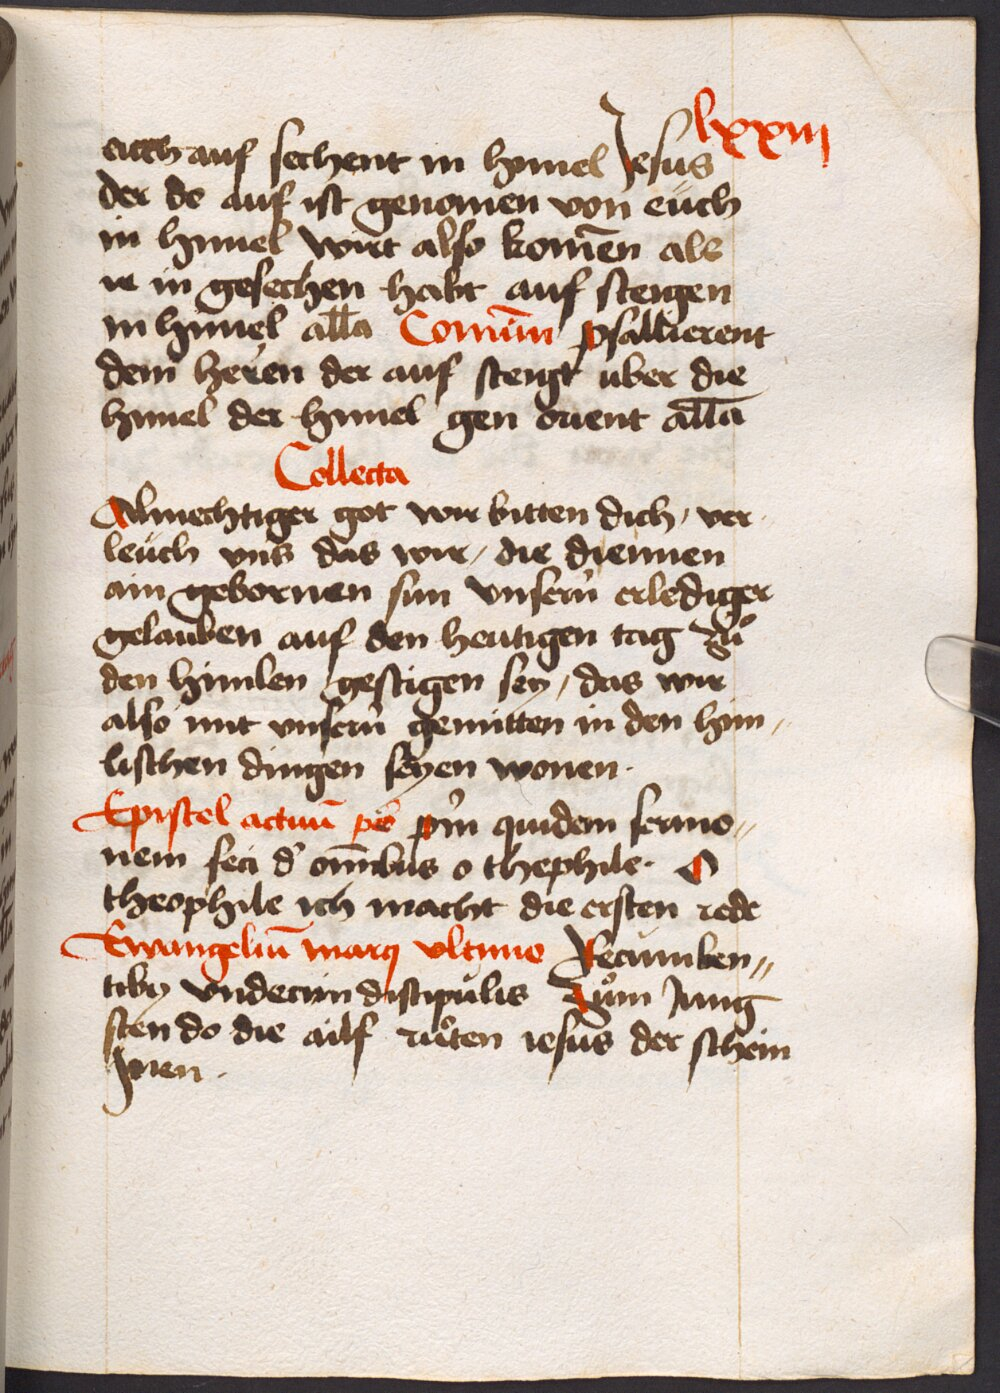 lxxiij
euch auf sechent in hymel Jesus
der do auf ist genomen von eüch
in himel wirt also komēn als
ir in gesechen habt auf steigen
in himel all̄a Comūm psallierent
dem heren der auf steigt uber die
himel der himel gen orient all̄a
Collecta
Almechtiger got wir bitten dich / ver
leüch vns das wir / die diennen
ain gebornen sun vnsern̄ erlediger
gelauben auf den heutigen tag zů
den himlen gestigen sey / das wir
also mit vnsern̄ gemütten in den him„
lischen dingen seyen wonen ·
Epistel actuū pͦ pm̄ quidem sermo„
nem feci d' om̄ibus o thephile · O
theophile ich macht die ersten rede
Ewangeliū marci vltimo Recumben„
tiby vndecim discipulis Zům Jung
sten do die ailf růten iesus der schein
Jnen ·